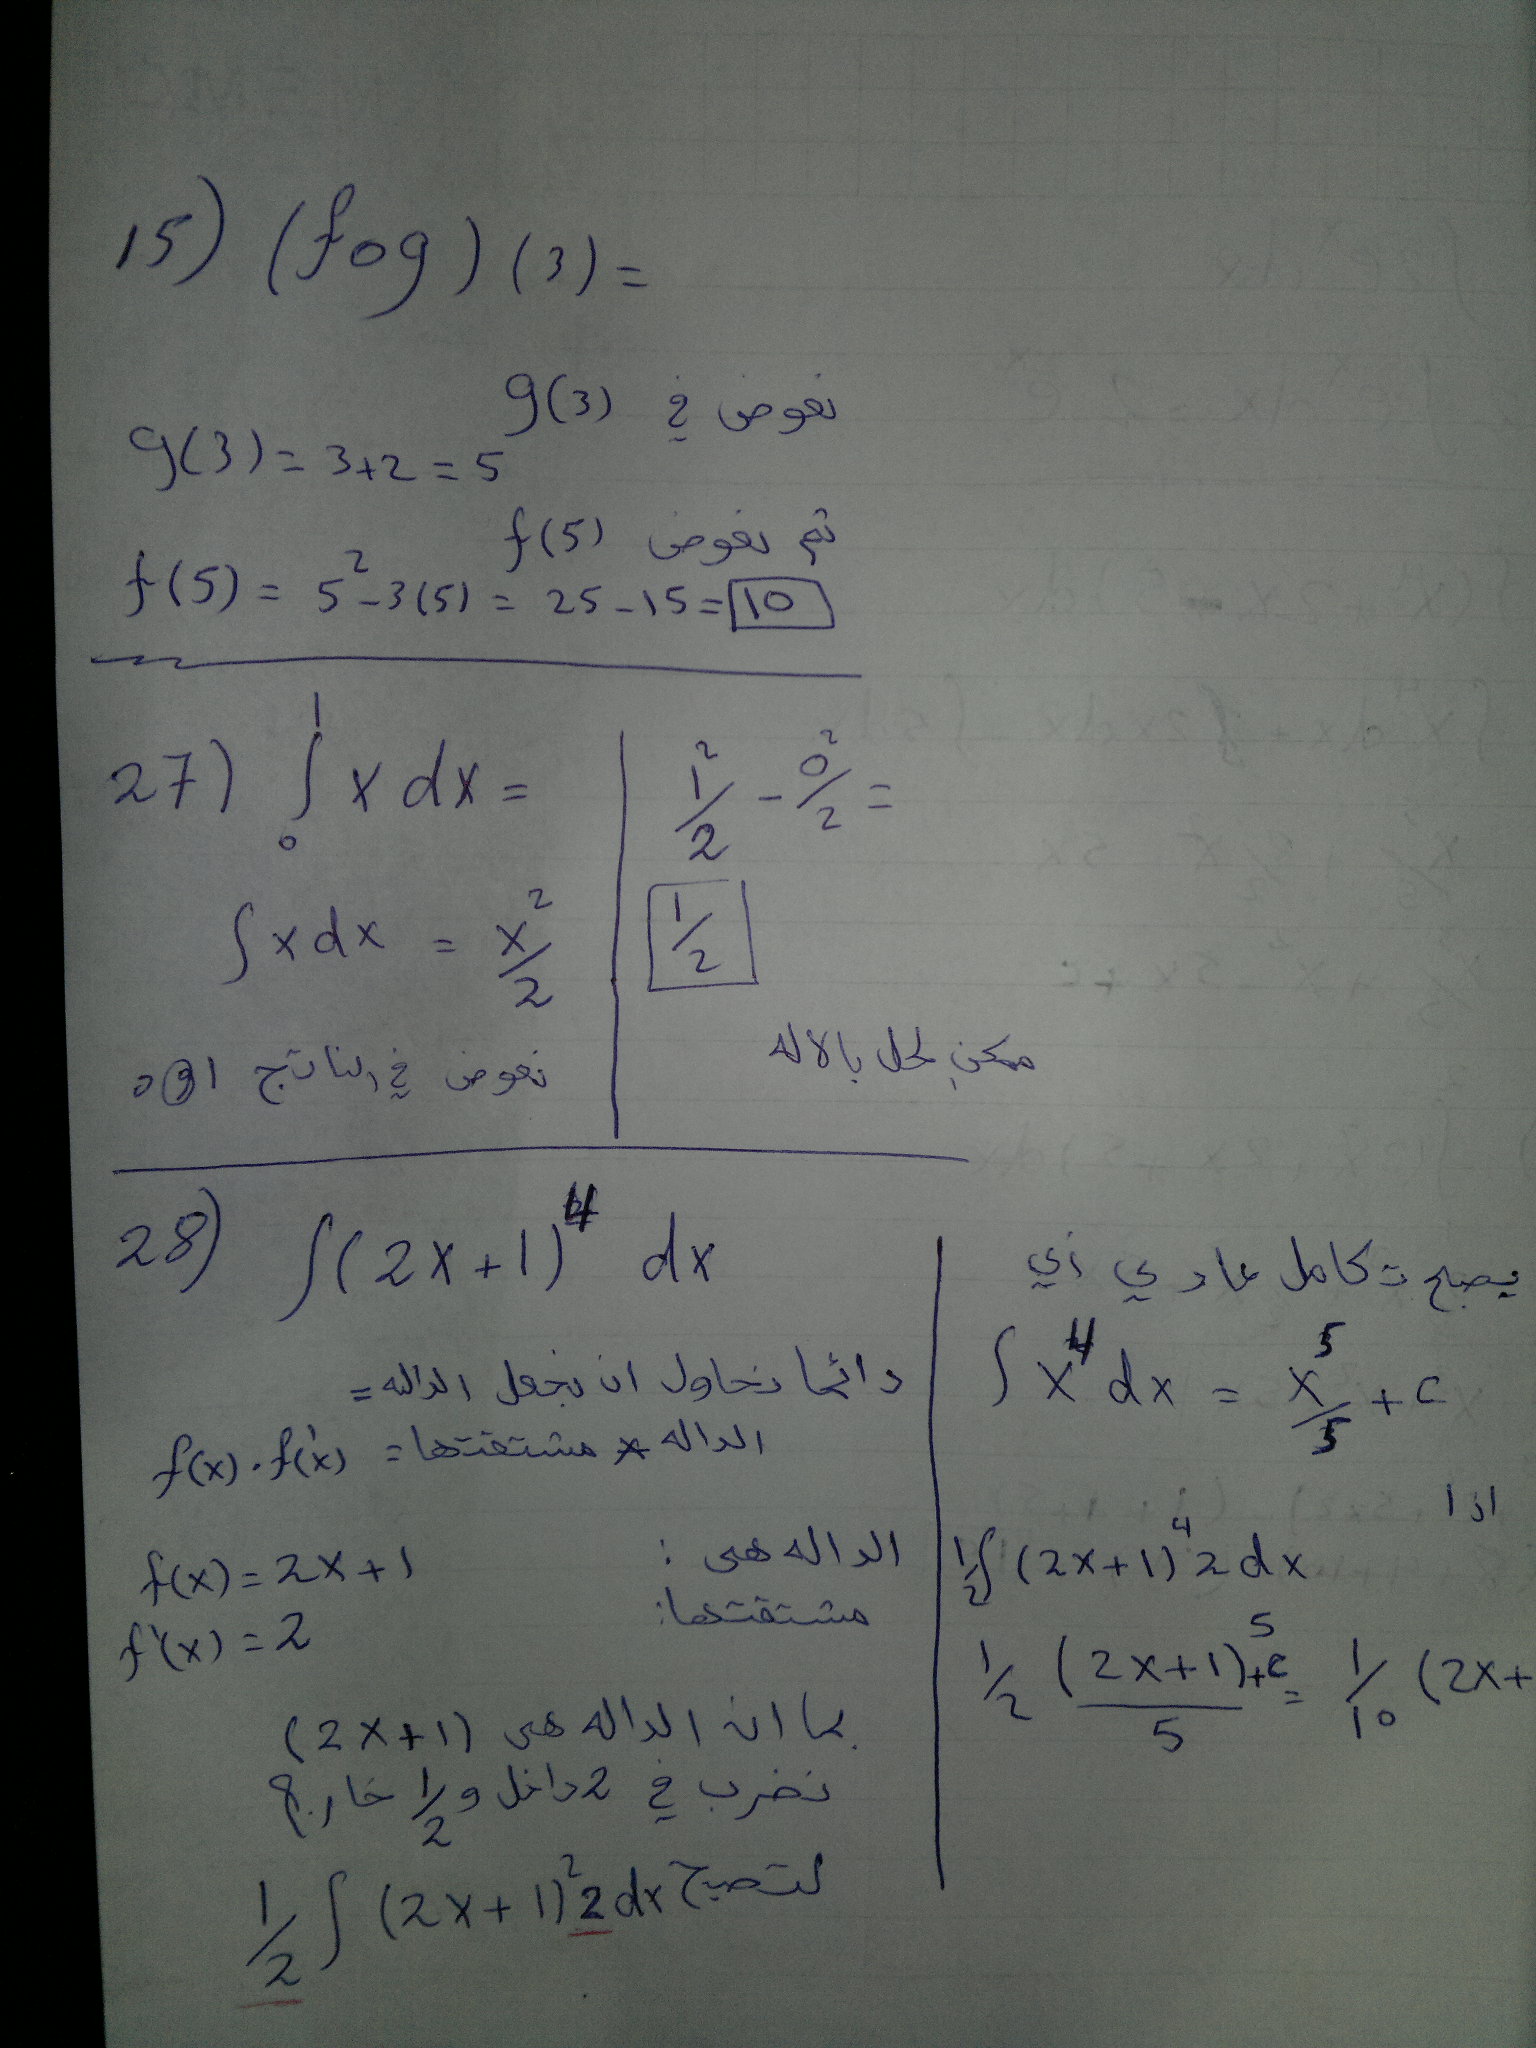 15) (fog) (3) =
نعوض في g(3)
g(3) = 3+2 = 5
ثم نعوض f(5)
f(5) = 5² - 3(5) = 25 - 15 = 10
27) ∫₀¹ x dx =
∫ x dx = x²/2
نعوض في الناتج 1 و 0
1²/2 - 0²/2 =
1/2
ممكن لحل بالاله
28) ∫ (2x+1)⁴ dx
دائما نحاول ان نجعل الداله =
الداله * مشتقتها = f(x) . f'(x)
الداله هى : f(x) = 2x+1
مشتقتها: f'(x) = 2
بما ان الداله هى (2x+1)
نضرب في 2 داخل و 1/2 خارج
لتصبح 1/2 ∫ (2x+1)² 2 dx
يصبح تكامل عادي زي
∫ x⁴ dx = x⁵/5 + c
اذا
1/2 ∫ (2x+1)⁴ 2 dx
1/2 (2x+1)⁵/5 + c = 1/10 (2x+